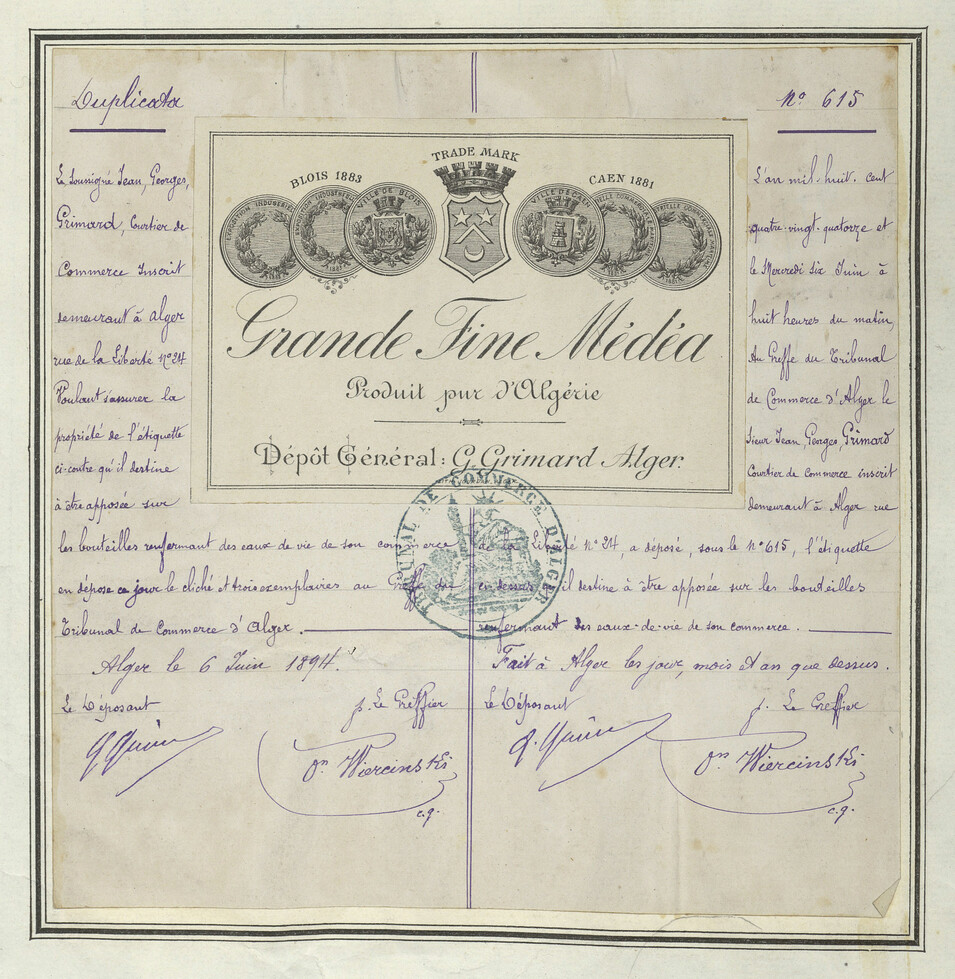 Duplicata
Nº 615
Le Sousigné Jean, Georges,
Grimard, Courtier de
Commerce Inscrit
demeurant à Alger
rue de la Liberté nº 24
Voulant s'assurer la
propriété de l'étiquette
ci-contre qu'il destine
à être apposée sur
les bouteilles renfermant des eaux de vie de son commerce
en dépose ce jour le cliché et trois exemplaires au Greffe du
Tribunal de Commerce d'Alger.
Alger le 6 Juin 1894.
Le Déposant
p. Le Greffier
Wiercinski
c.g.
TRADE MARK
BLOIS 1883
CAEN 1881
VILLE DE BLOIS
VILLE DE CAEN
Grande Fine Médéa
Produit pur d'Algérie
Dépôt Général: G. Grimard Alger.
TRIBUNAL DE COMMERCE D'ALGER
L'an mil-huit-cent
quatre-vingt-quatorze et
le Mercredi six Juin à
huit heures du matin,
Au Greffe du Tribunal
de Commerce d'Alger le
Sieur Jean, Georges, Grimard
Courtier de commerce inscrit
demeurant à Alger rue
de la Liberté nº 24, a déposé, sous le nº 615, l'étiquette
en dessus qu'il destine à être apposée sur les bouteilles
renfermant des eaux-de-vie de son commerce.
Fait à Alger les jour, mois et an que dessus.
Le Déposant
p. Le Greffier
Wiercinski
c.g.